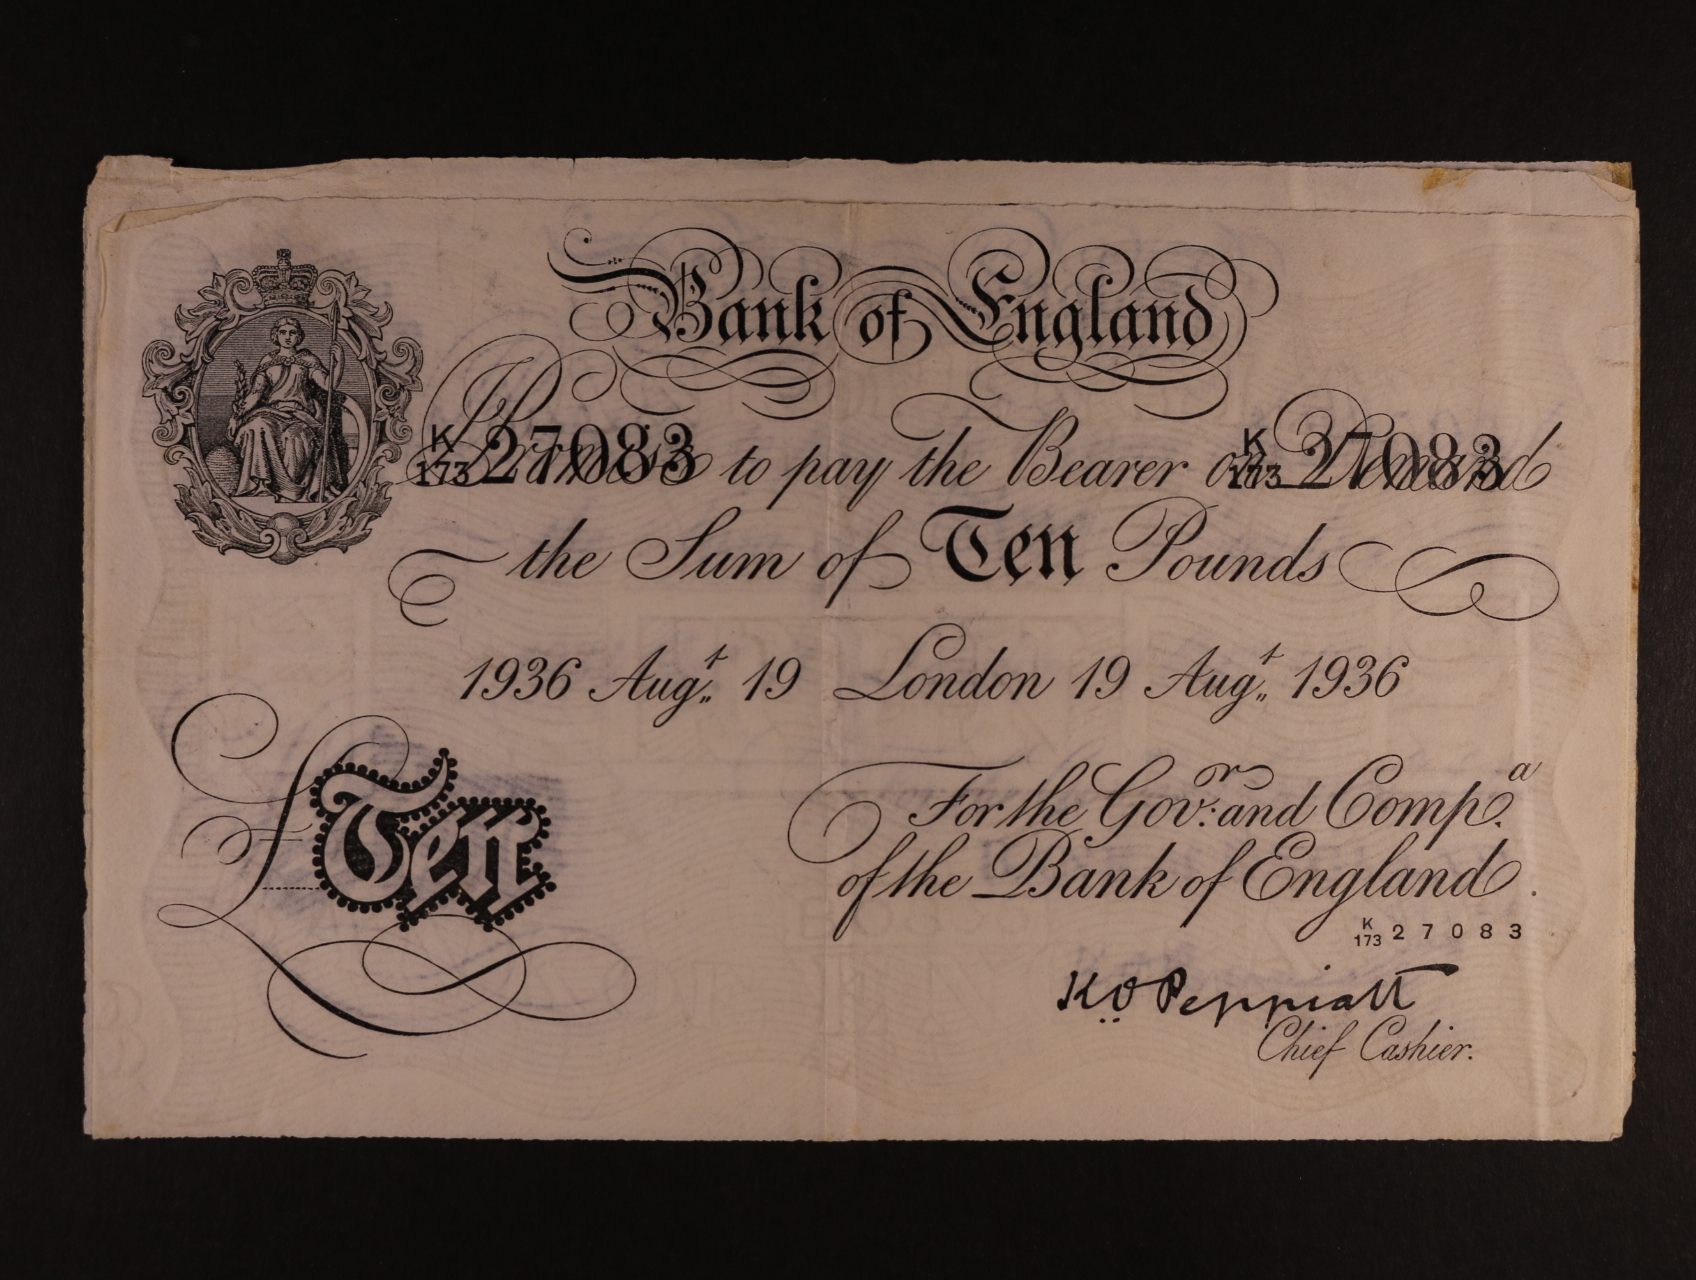 Bank of England
K
173 27083 I Promise to pay the Bearer on Demand K
173 27083
the Sum of Ten Pounds
1936 Augt. 19 London 19 Augt. 1936
£Ten
For the Govr. and Compa.
of the Bank of England.
K
173 27083
K.O. Peppiatt
Chief Cashier.